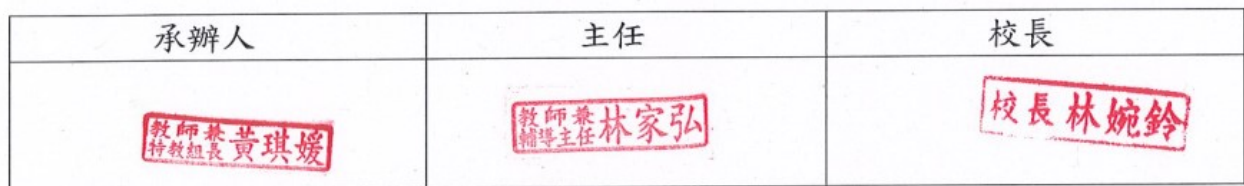 承辦人 主任 校長
教師兼特教組長 黃琪媛 教師兼輔導主任 林家弘 校長 林婉鈴